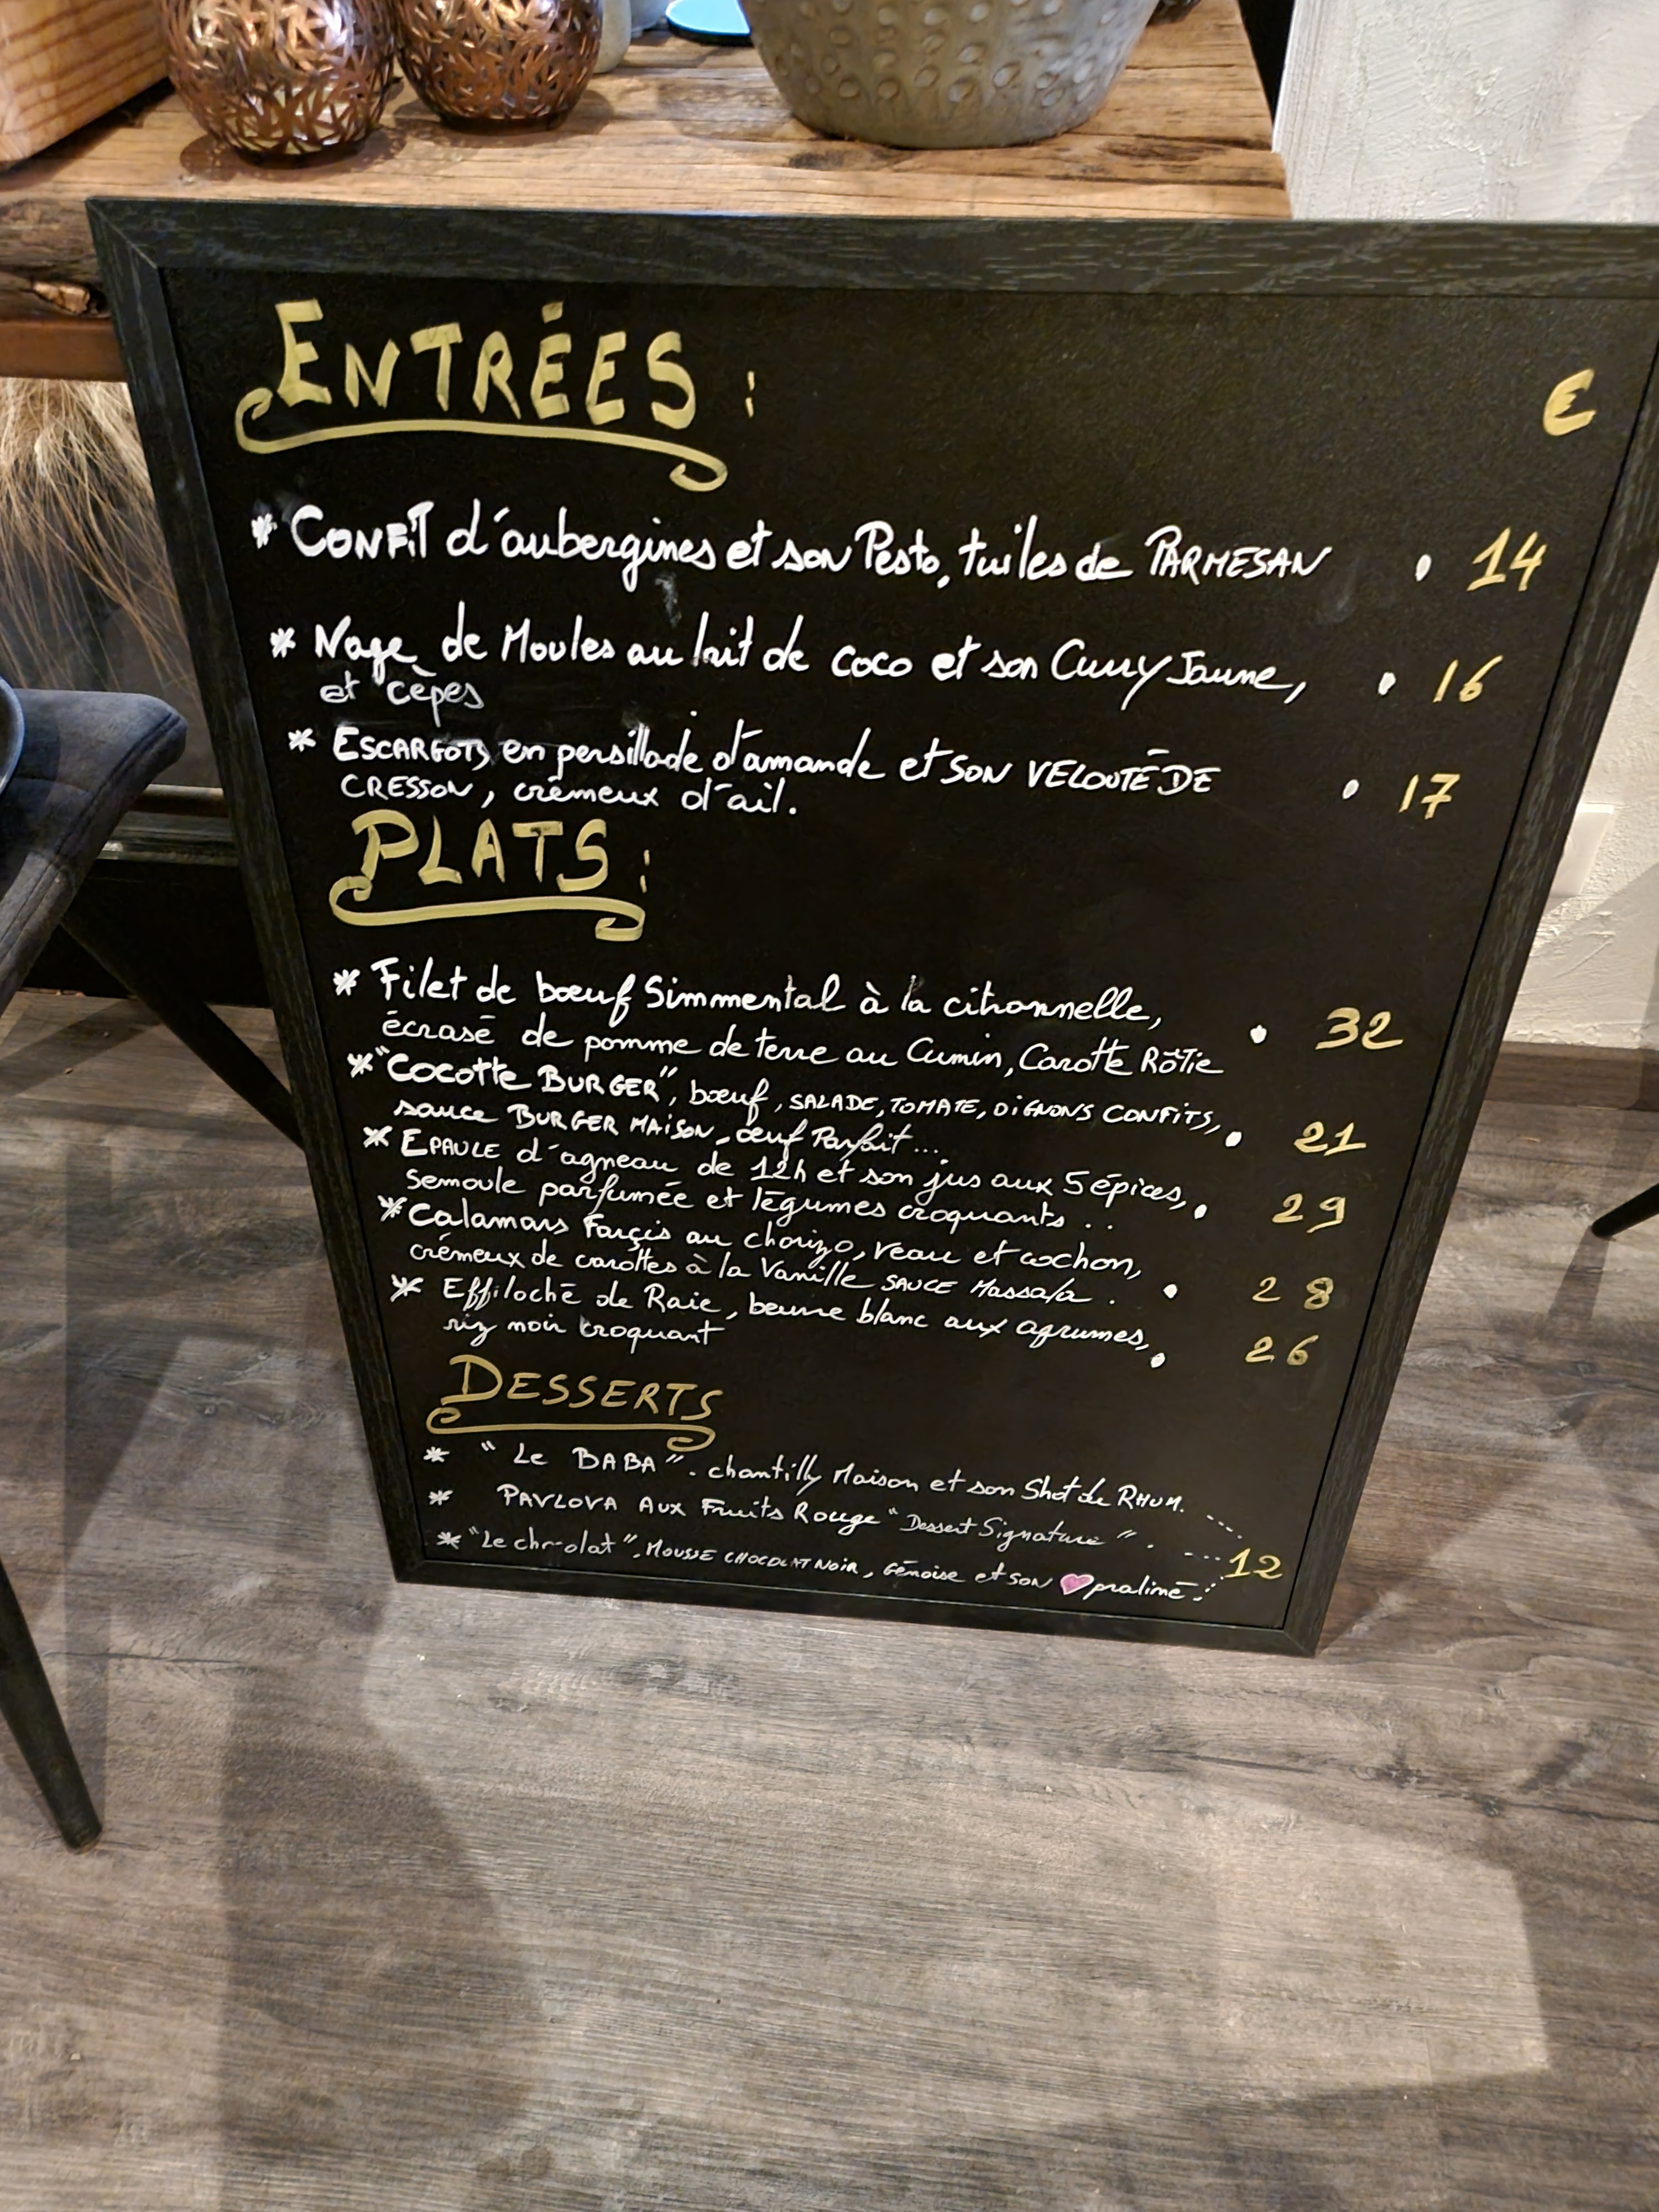 ENTRÉES :
€
* CONFIT d'aubergines et son Pesto, tuiles de PARMESAN • 14
* Nage de Moules au lait de coco et son Curry Jaune, • 16
et cèpes
* ESCARGOTS en persillade d'amande et SON VELOUTÉ DE • 17
CRESSON, crèmeux d'ail.
PLATS :
* Filet de bœuf Simmental à la citronnelle, • 32
écrasé de pomme de terre au Cumin, Carotte RôTie
* "Cocotte BURGER", bœuf, SALADE, TOMATE, OIGNONS CONFITS, • 21
sauce BURGER MAISON, œuf Parfait...
* EPAULE d'agneau de 12h et son jus aux 5 épices, • 29
semoule parfumée et légumes croquants . .
* Calamars Farçis au chorizo, veau et cochon, • 28
crémeux de carottes à la Vanille SAUCE Massala .
* Effiloché de Raie, beurre blanc aux agrumes, • 26
riz noir croquant
DESSERTS
* " Le BABA ". chantilly Maison et son Shot de RHUM.
* PAVLOVA Aux Fruits Rouge "Dessert Signature" . ---- 12
* "Le chocolat", MOUSSE CHOCOLAT NOIR, Génoise et SON ♥ praliné